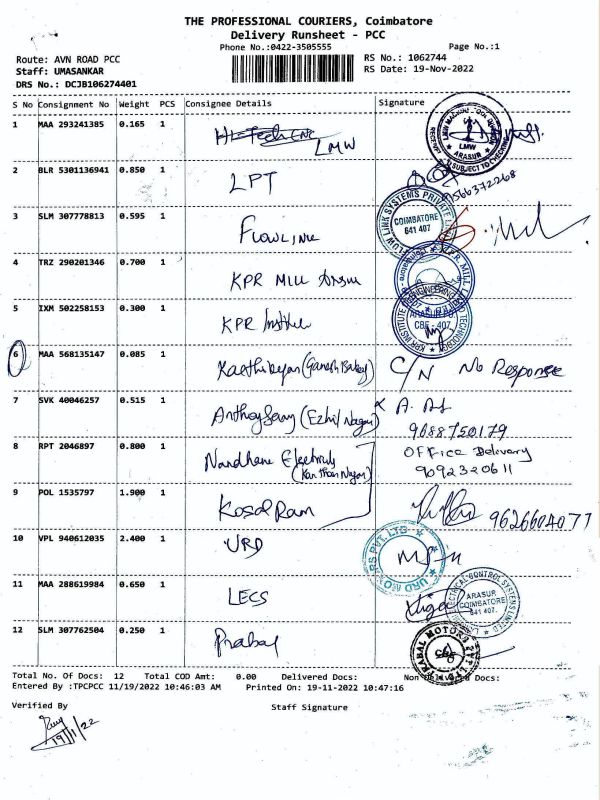 THE PROFESSIONAL COURIERS, Coimbatore
Delivery Runsheet - PCC
Phone No.:0422-3505555 Page No.:1
Route: AVN ROAD PCC RS No.: 1062744
Staff: UMASANKAR RS Date: 19-Nov-2022
DRS No.: DCJB106274401
S No Consignment No Weight PCS Consignee Details Signature
1 MAA 293241385 0.165 1 LMW
LMW
ARASUR
SUBJECT TO CHECKING
2 BLR 5301136941 0.850 1 LPT 9566372268
3 SLM 307778813 0.595 1 Flowline
FLOW LINK SYSTEMS PRIVATE
COIMBATORE
641 407
4 TRZ 290201346 0.700 1 KPR Mill
5 IXM 502258153 0.300 1 KPR
KPR INSTITUTE OF ENGINEERING TECHNOLOGY
ARASUR
CBE - 407
6 MAA 568135147 0.085 1 C/N No Response
7 SVK 40046257 0.515 1 9688750179
8 RPT 2046897 0.800 1 Nandhana OFFice Delivery
9092320611
9 POL 1535797 1.900 1 Kosal Ram 9626604077
10 VPL 940612035 2.400 1 URD
URD MOTORS PVT. LTD
11 MAA 288619984 0.650 1 LECS
ELECTRICAL CONTROL SYSTEMS LIMITED
ARASUR
COIMBATORE
641 407.
12 SLM 307762504 0.250 1 Prabal
PRABAL MOTORS PVT LTD
Total No. Of Docs: 12 Total COD Amt: 0.00 Delivered Docs: Non Delivered Docs:
Entered By :TPCPCC 11/19/2022 10:46:03 AM Printed On: 19-11-2022 10:47:16
Verified By Staff Signature